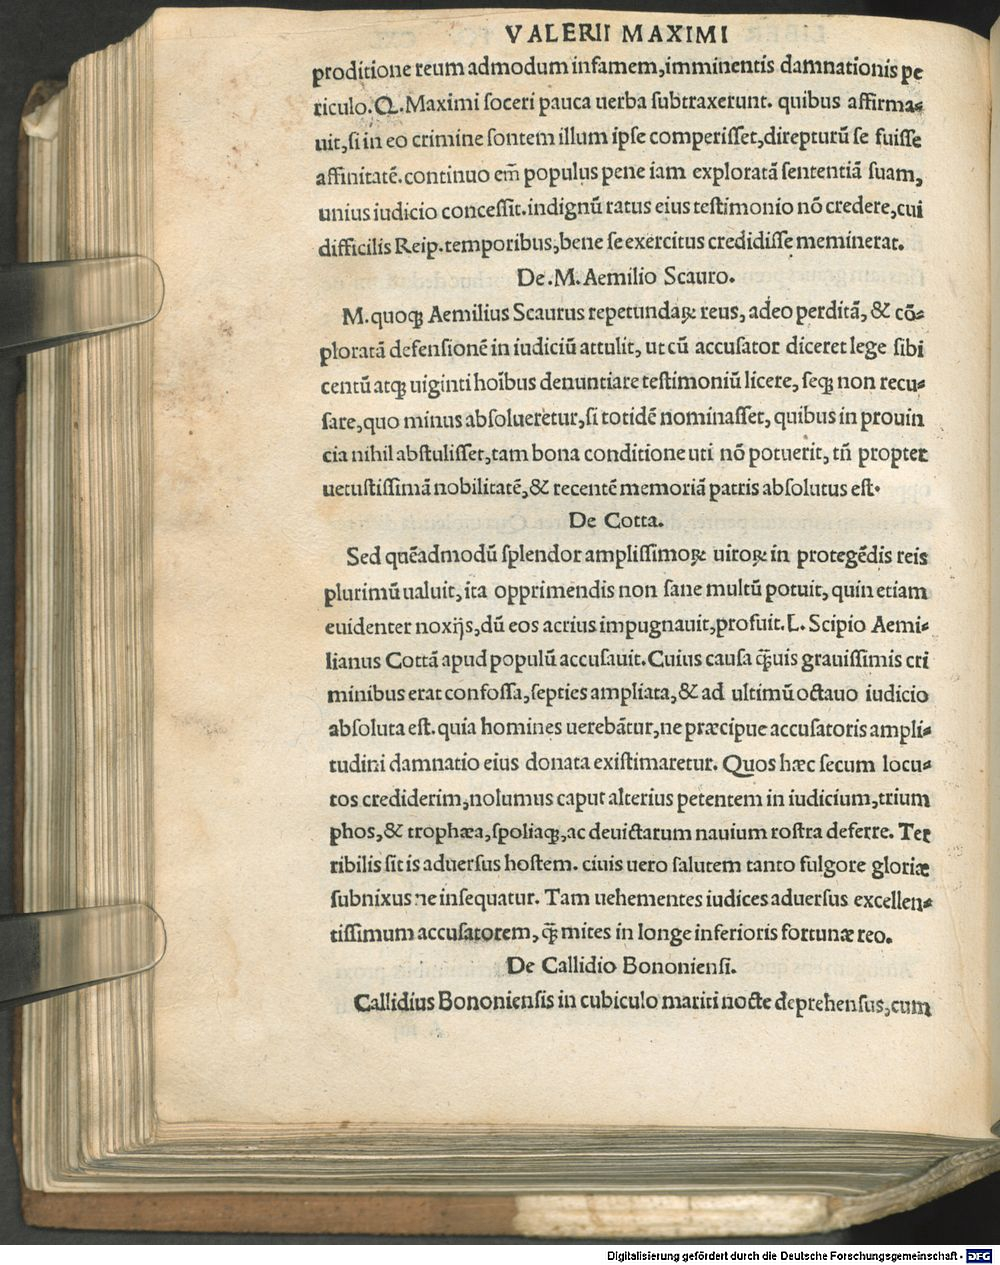 VALERII MAXIMI
proditione reum admodum infamem, imminentis damnationis pe
riculo. Q. Maximi soceri pauca uerba subtraxerunt. quibus affirma-
uit, si in eo crimine sontem illum ipse comperisset, direpturū se fuisse
affinitatē. continuo em̄ populus pene iam exploratā sententiā suam,
unius iudicio concessit. indignū ratus eius testimonio nō credere, cui
difficilis Reip. temporibus, bene se exercitus credidisse meminerat.
De. M. Aemilio Scauro.
M. quoqꝫ Aemilius Scaurus repetundaꝝ reus, adeo perditā, & cō-
ploratā defensionē in iudiciū attulit, ut cū accusator diceret lege sibi
centū atqꝫ uiginti hoībus denuntiare testimoniū licere, seqꝫ non recu-
sare, quo minus absolueretur, si totidē nominasset, quibus in prouin
cia nihil abstulisset, tam bona conditione uti nō potuerit, tñ propter
uetustissimā nobilitatē, & recentē memoriā patris absolutus est.
De Cotta.
Sed quēadmodū splendor amplissimoꝝ uiroꝝ in protegēdis reis
plurimū ualuit, ita opprimendis non sane multū potuit, quin etiam
euidenter noxijs, dū eos acrius impugnauit, profuit. L. Scipio Aemi-
lianus Cottā apud populū accusauit. Cuius causa q̄uis grauissimis cri
minibus erat confossa, septies ampliata, & ad ultimū octauo iudicio
absoluta est. quia homines uerebātur, ne præcipue accusatoris ampli-
tudini damnatio eius donata existimaretur. Quos hæc secum locu-
tos crediderim, nolumus caput alterius petentem in iudicium, trium
phos, & trophæa, spoliaqꝫ, ac deuictarum nauium rostra deferre. Ter
ribilis sit is aduersus hostem. ciuis uero salutem tanto fulgore gloriæ
subnixus ne insequatur. Tam uehementes iudices aduersus excellen-
tissimum accusatorem, q̄ mites in longe inferioris fortunæ reo.
De Callidio Bononiensi.
Callidius Bononiensis in cubiculo mariti nocte deprehensus, cum
Digitalisierung gefördert durch die Deutsche Forschungsgemeinschaft - DFG